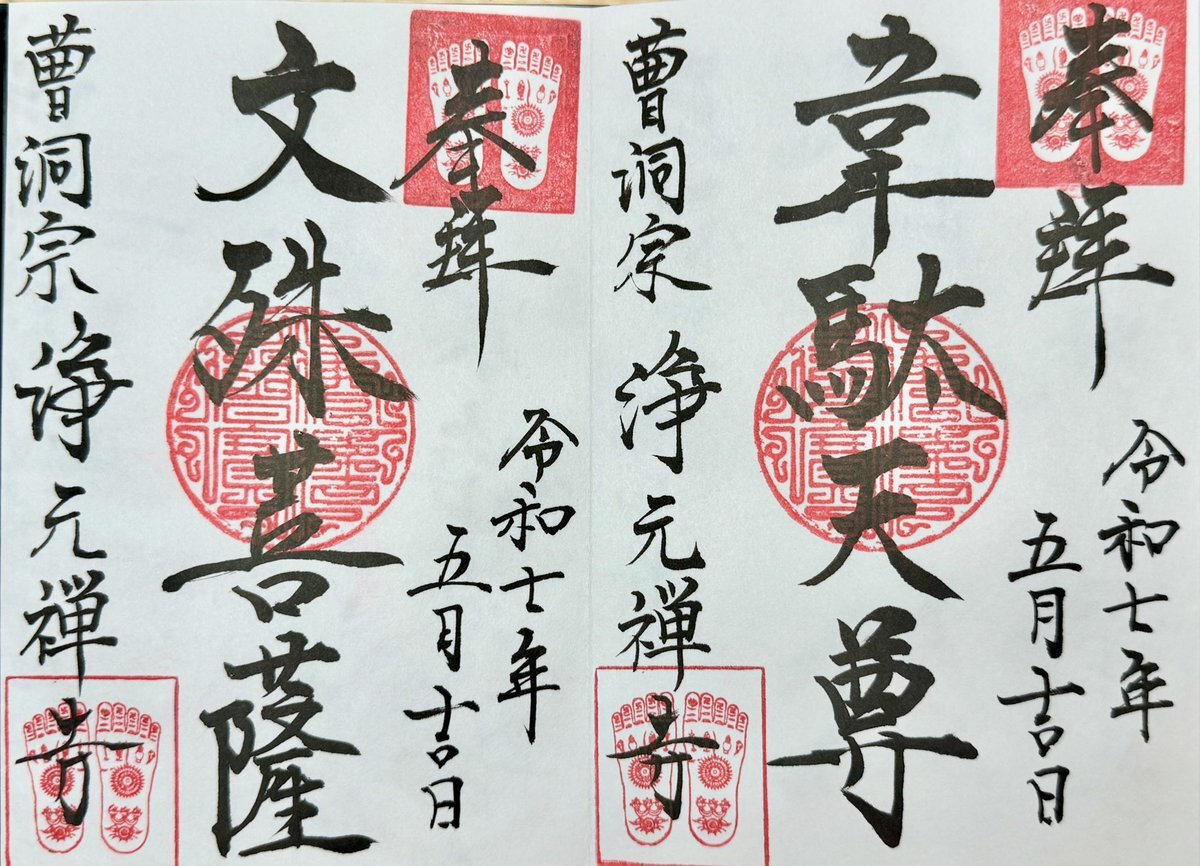 奉拜
令和七年
五月吉日
韋駄天尊
曹洞宗 浄元禅寺
奉拜
令和七年
五月吉日
文殊菩薩
曹洞宗 浄元禅寺